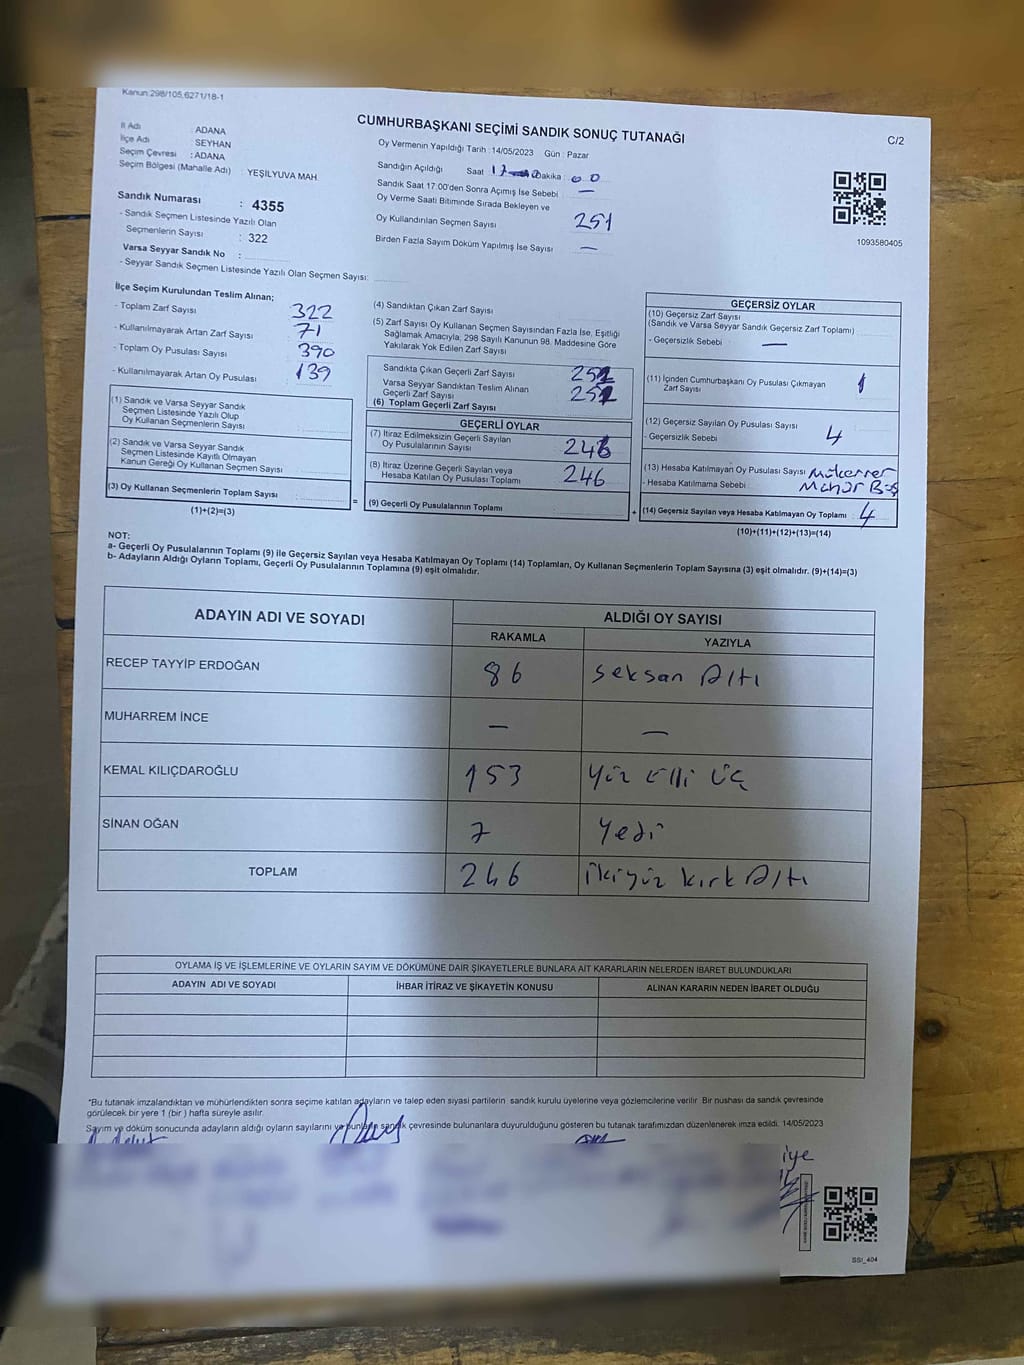 Kanun:298/105,6271/18-1
CUMHURBAŞKANI SEÇİMİ SANDIK SONUÇ TUTANAĞI
C/2
İl Adı : ADANA
İlçe Adı : SEYHAN
Seçim Çevresi : ADANA
Seçim Bölgesi (Mahalle Adı) : YEŞİLYUVA MAH.
Sandık Numarası : 4355
- Sandık Seçmen Listesinde Yazılı Olan
Seçmenlerin Sayısı : 322
Varsa Seyyar Sandık No :
- Seyyar Sandık Seçmen Listesinde Yazılı Olan Seçmen Sayısı:
Oy Vermenin Yapıldığı Tarih : 14/05/2023 Gün : Pazar
Sandığın Açıldığı Saat 17 Dakika : 00
Sandık Saat 17.00'den Sonra Açımış İse Sebebi : —
Oy Verme Saati Bitiminde Sırada Bekleyen ve
Oy Kullandırılan Seçmen Sayısı 251
Birden Fazla Sayım Döküm Yapılmış İse Sayısı —
1093580405
İlçe Seçim Kurulundan Teslim Alınan;
- Toplam Zarf Sayısı 322
- Kullanılmayarak Artan Zarf Sayısı : 71
- Toplam Oy Pusulası Sayısı : 390
- Kullanılmayarak Artan Oy Pusulası : 139
(1) Sandık ve Varsa Seyyar Sandık
Seçmen Listesinde Yazılı Olup
Oy Kullanan Seçmenlerin Sayısı
(2) Sandık ve Varsa Seyyar Sandık
Seçmen Listesinde Kayıtlı Olmayan
Kanun Gereği Oy Kullanan Seçmen Sayısı
(3) Oy Kullanan Seçmenlerin Toplam Sayısı :
(1)+(2)=(3)
(4) Sandıktan Çıkan Zarf Sayısı
(5) Zarf Sayısı Oy Kullanan Seçmen Sayısından Fazla İse, Eşitliği
Sağlamak Amacıyla, 298 Sayılı Kanunun 98. Maddesine Göre
Yakılarak Yok Edilen Zarf Sayısı
Sandıkta Çıkan Geçerli Zarf Sayısı
Varsa Seyyar Sandıktan Teslim Alınan
Geçerli Zarf Sayısı
(6) Toplam Geçerli Zarf Sayısı
GEÇERLİ OYLAR
(7) İtiraz Edilmeksizin Geçerli Sayılan
Oy Pusulalarının Sayısı 246
(8) İtiraz Üzerine Geçerli Sayılan veya
Hesaba Katılan Oy Pusulası Toplamı 246
= (9) Geçerli Oy Pusulalarının Toplamı +
GEÇERSİZ OYLAR
(10) Geçersiz Zarf Sayısı
(Sandık ve Varsa Seyyar Sandık Geçersiz Zarf Toplamı)
- Geçersizlik Sebebi : —
(11) İçinden Cumhurbaşkanı Oy Pusulası Çıkmayan
Zarf Sayısı 1
(12) Geçersiz Sayılan Oy Pusulası Sayısı 4
- Geçersizlik Sebebi
(13) Hesaba Katılmayan Oy Pusulası Sayısı Mükerrer
- Hesaba Katılmama Sebebi :
(14) Geçersiz Sayılan veya Hesaba Katılmayan Oy Toplamı : 4
(10)+(11)+(12)+(13)=(14)
NOT:
a- Geçerli Oy Pusulalarının Toplamı (9) ile Geçersiz Sayılan veya Hesaba Katılmayan Oy Toplamı (14) Toplamları, Oy Kullanan Seçmenlerin Toplam Sayısına (3) eşit olmalıdır. (9)+(14)=(3)
b- Adayların Aldığı Oyların Toplamı, Geçerli Oy Pusulalarının Toplamına (9) eşit olmalıdır.
ADAYIN ADI VE SOYADI
ALDIĞI OY SAYISI
RAKAMLA YAZIYLA
RECEP TAYYİP ERDOĞAN 86 seksan Altı
MUHARREM İNCE — —
KEMAL KILIÇDAROĞLU 153 Yüz elli üç
SİNAN OĞAN 7 Yedi
TOPLAM 246 ikiyüz kırk Altı
OYLAMA İŞ VE İŞLEMLERİNE VE OYLARIN SAYIM VE DÖKÜMÜNE DAİR ŞİKAYETLERLE BUNLARA AİT KARARLARIN NELERDEN İBARET BULUNDUKLARI
ADAYIN ADI VE SOYADI İHBAR İTİRAZ VE ŞİKAYETİN KONUSU ALINAN KARARIN NEDEN İBARET OLDUĞU
"Bu tutanak imzalandıktan ve mühürlendikten sonra seçime katılan adayların ve talep eden siyasi partilerin sandık kurulu üyelerine veya gözlemcilerine verilir. Bir nüshası da sandık çevresinde
görülecek bir yere 1 (bir ) hafta süreyle asılır.
Sayım ve döküm sonucunda adayların aldığı oyların sayılarını ve bunların sandık çevresinde bulunanlara duyurulduğunu gösteren bu tutanak tarafımızdan düzenlenerek imza edildi. 14/05/2023
SSI_404